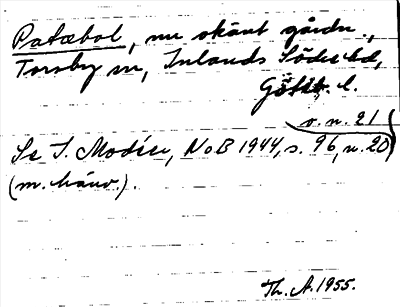 Patæbol, nu skänt gårdn.,
Torsby sn, Inlands Södre hd,
Götb. l.
o. n. 21
Se I. Modéer, NoB 1944, s. 96, n. 20
(m. hänv.).
Th. A. 1955.